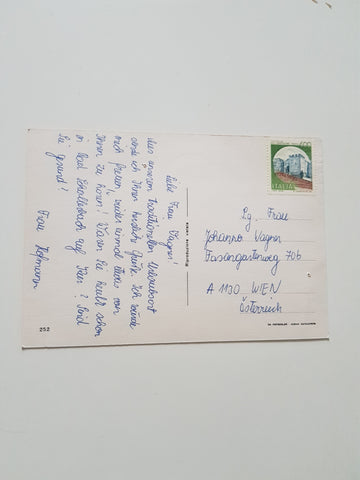 Liebe Frau Wagner!
Aus unserem traditionellen Urlaubsort
sende ich Ihnen herzliche Grüße. Ich würde
mich freuen, wieder einmal etwas von
Ihnen zu hören! Waren Sie heuer schon
in Bad auf Kur? Sind
Sie gesund!
Frau Hofmann
252
Riproduzione vietata
400
ITALIA
Lg. Frau
Johanna Wagner
Fasangartenweg 70b
A 1130 WIEN
Österreich